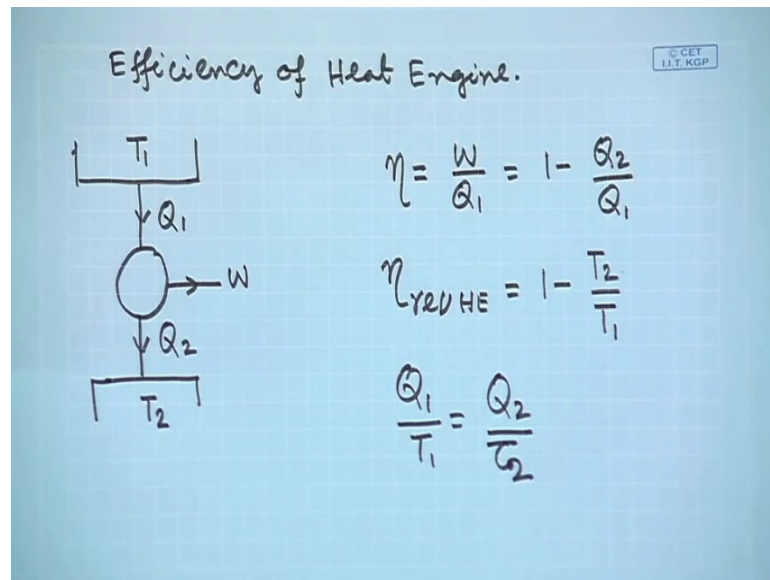 Efficiency of Heat Engine.
© CET
I.I.T. KGP
T1
Q1
W
Q2
T2
η = W/Q1 = 1 - Q2/Q1
ηrev HE = 1 - T2/T1
Q1/T1 = Q2/T2